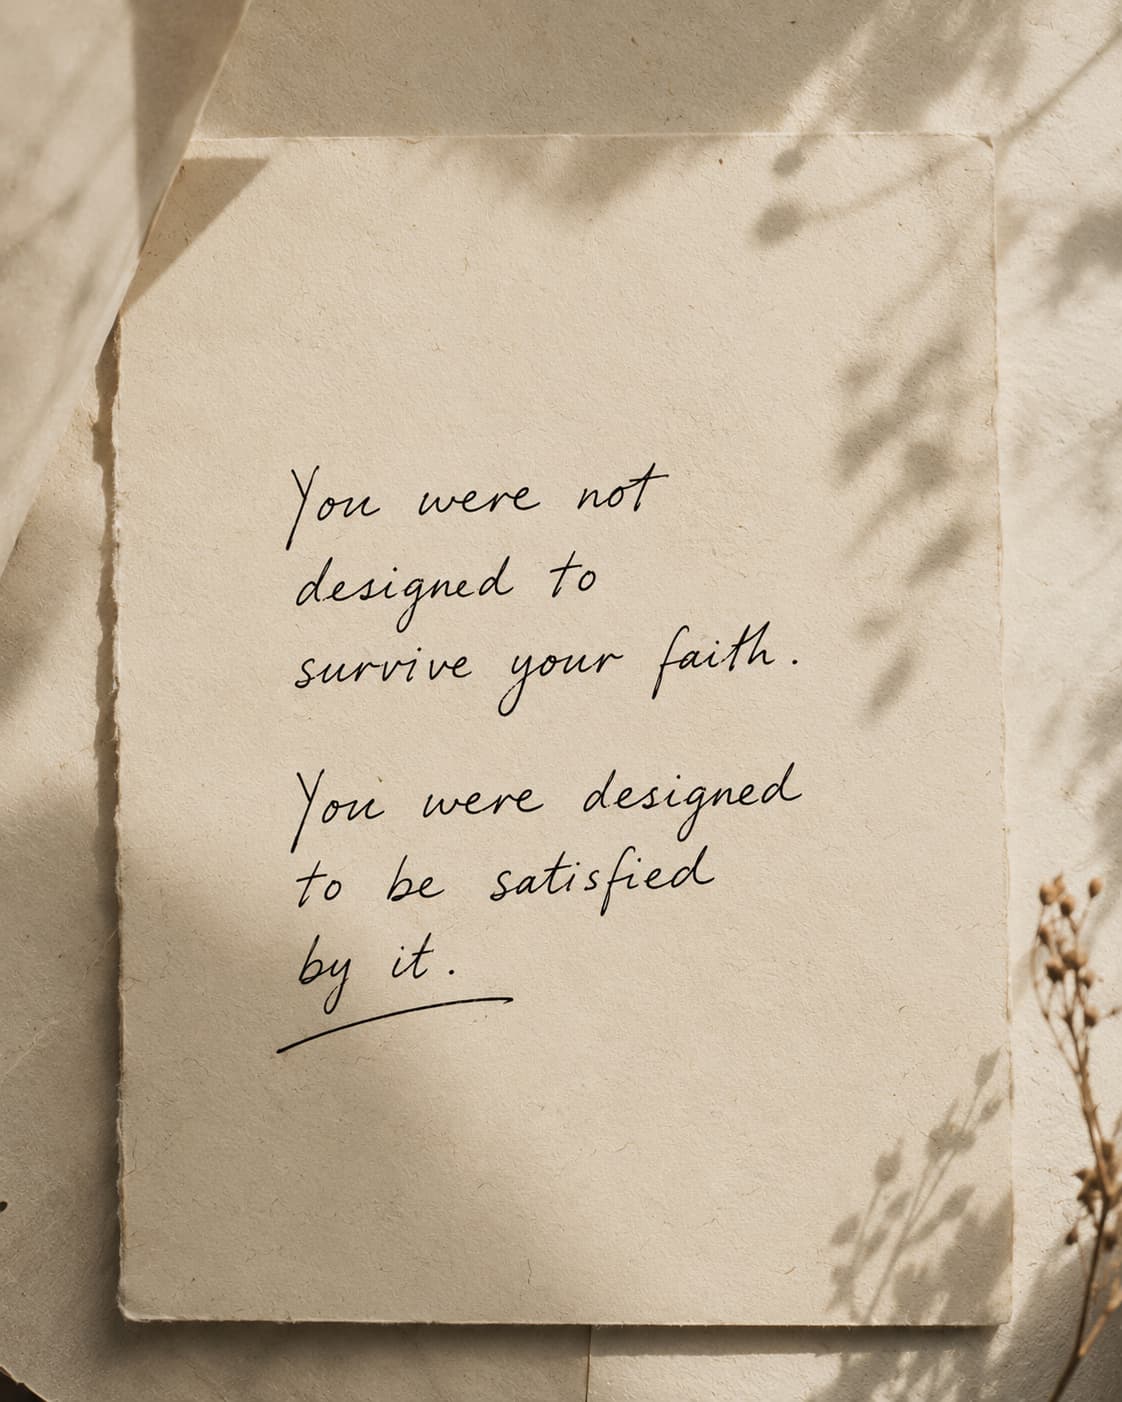 You were not
designed to
survive your faith.
You were designed
to be satisfied
by it.